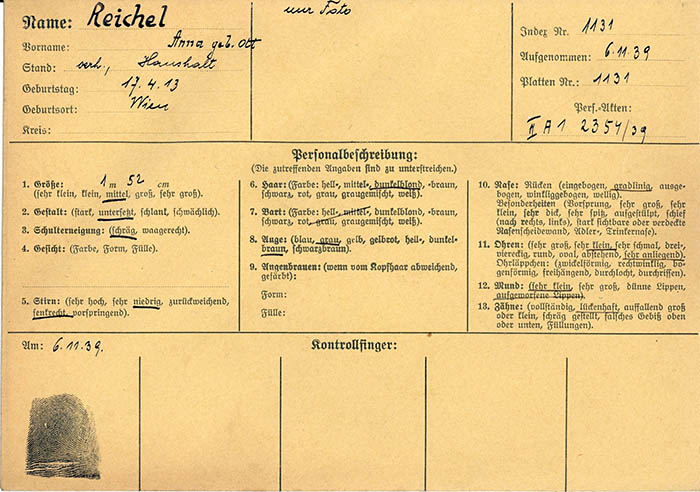 Name: Reichel
Vorname: Anna geb. Ott
Stand: verh., Haushalt
Geburtstag: 17.4.13
Geburtsort: Wien
Kreis:
nur Foto
Index Nr. 1131
Aufgenommen: 6.11.39
Platten Nr.: 1131
Pers.-Akten:
II A 1 2354/39
Personalbeschreibung:
(Die zutreffenden Angaben sind zu unterstreichen.)
1. Größe: 1 m 52 cm
(sehr klein, klein, mittel, groß, sehr groß).
2. Gestalt: (stark, untersetzt, schlank, schwächlich).
3. Schulterneigung: (schräg, waagerecht).
4. Gesicht: (Farbe, Form, Fülle).
5. Stirn: (sehr hoch, sehr niedrig, zurückweichend,
senkrecht, vorspringend).
6. Haar: (Farbe: hell-, mittel-, dunkelblond, -braun,
schwarz, rot, grau, graugemischt, weiß).
7. Bart: (Farbe: hell-, mittel-, dunkelblond, -braun,
schwarz, rot, grau, graugemischt, weiß).
8. Auge: (blau, grau, gelb, gelbrot, hell-, dunkel-
braun, schwarzbraun).
9. Augenbrauen: (wenn vom Kopfhaar abweichend,
gefärbt):
Form:
Fülle:
10. Nase: Rücken (eingebogen, gradlinig, ausge-
bogen, winkliggebogen, wellig).
Besonderheiten (Vorsprung, sehr groß, sehr
klein, sehr dick, sehr spitz, aufgestülpt, schief
(nach rechts, links), stark sichtbare oder verdeckte
Nasenscheidewand, Adler-, Trinkernase).
11. Ohren: (sehr groß, sehr klein, sehr schmal, drei-,
viereckig, rund, oval, abstehend, sehr anliegend).
Ohrläppchen: (zwickelförmig, rechtwinklig, bo-
genförmig, freihängend, durchlocht, durchrissen).
12. Mund: (sehr klein, sehr groß, dünne Lippen,
aufgeworfene Lippen).
13. Zähne: (vollständig, lückenhaft, auffallend groß
oder klein, schräg gestellt, falsches Gebiß oben
oder unten, Füllungen).
Am: 6.11.39.
Kontrollfinger: